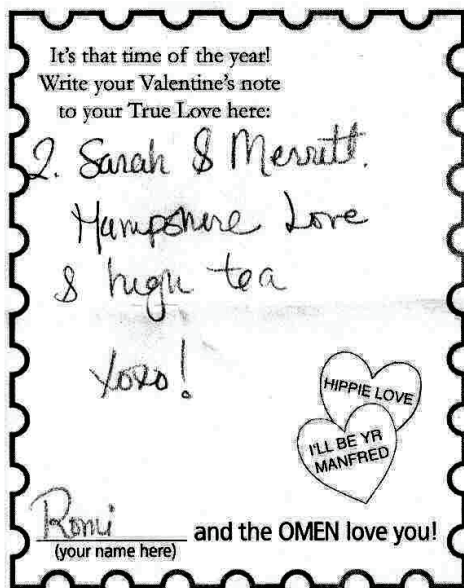 It's that time of the year!
Write your Valentine's note
to your True Love here:
2. Sarah & Merritt.
Hampshire Love
& high tea
xoxo!
HIPPIE LOVE
I'LL BE YR
MANFRED
Romi
and the OMEN love you!
(your name here)